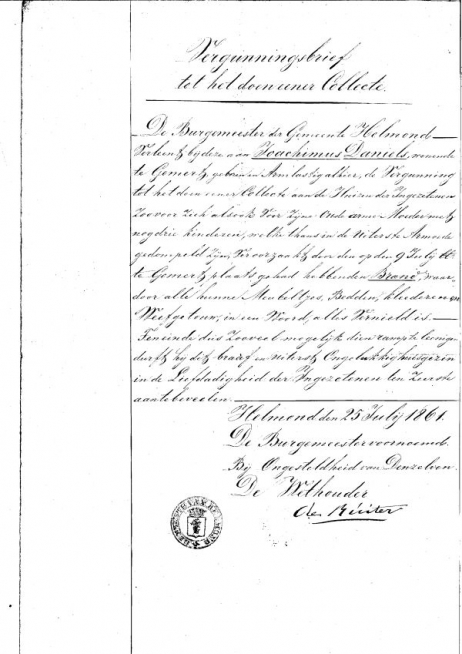 Vergunningsbrief
tot het doen eener Collecte.
De Burgemeester der Gemeente Helmond
Verleent bij deze aan Joachimus Daniels, wonende
te Gemert, geboren en Armlastig aldaar, de Vergunning
tot het doen eener Collecte aan de Huizen der Ingezetenen
Zoo voor Zich als ook Voor Zijne Oude arme Moeder met
nog drie kinderen, welke thans in de uiterste Armoede
gedompeld Zijn, Veroorzaakt door den op den 9 July
te Gemert plaats gehad hebbenden Brand, waar
door alle hunne Meubeltjes, Bedden, kleederen en
Weefgetouw, in een Woord, alles Vernield is.
Ten einde dus Zooveel mogelijk dien ramp te leenigen
durft hij dit braaf en uiterst Ongelukkig huisgezin
in de Liefdadigheid der Ingezetenen ten Zeerste
aantebevelen.
Helmond den 25 July 1861.
De Burgemeester voornoemd
Bij Ongesteldheid van Denzelven
De Wethouder
de Ruiter